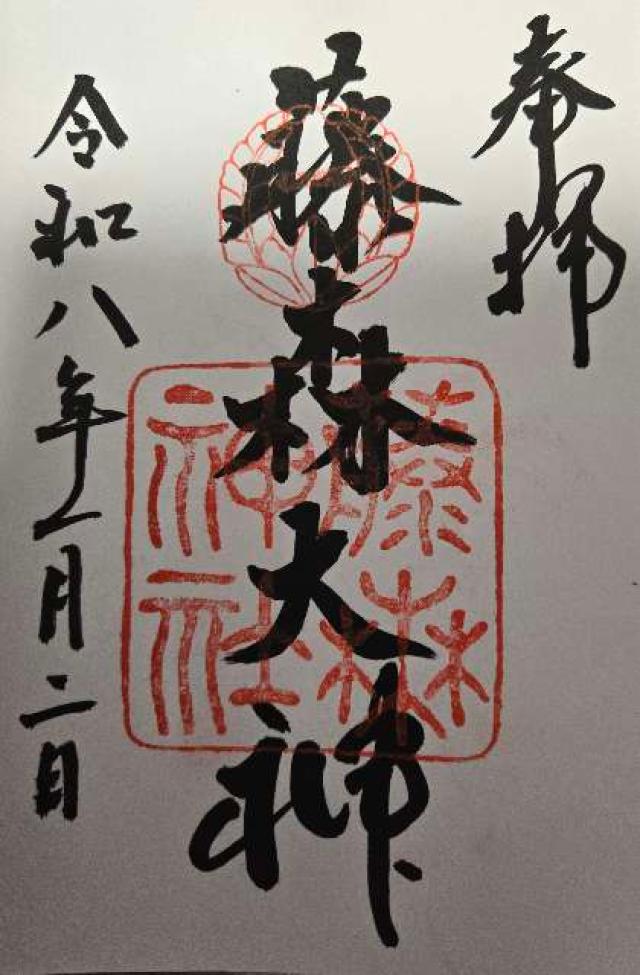 奉拝
藤森大神
藤森
神社
令和八年一月二日